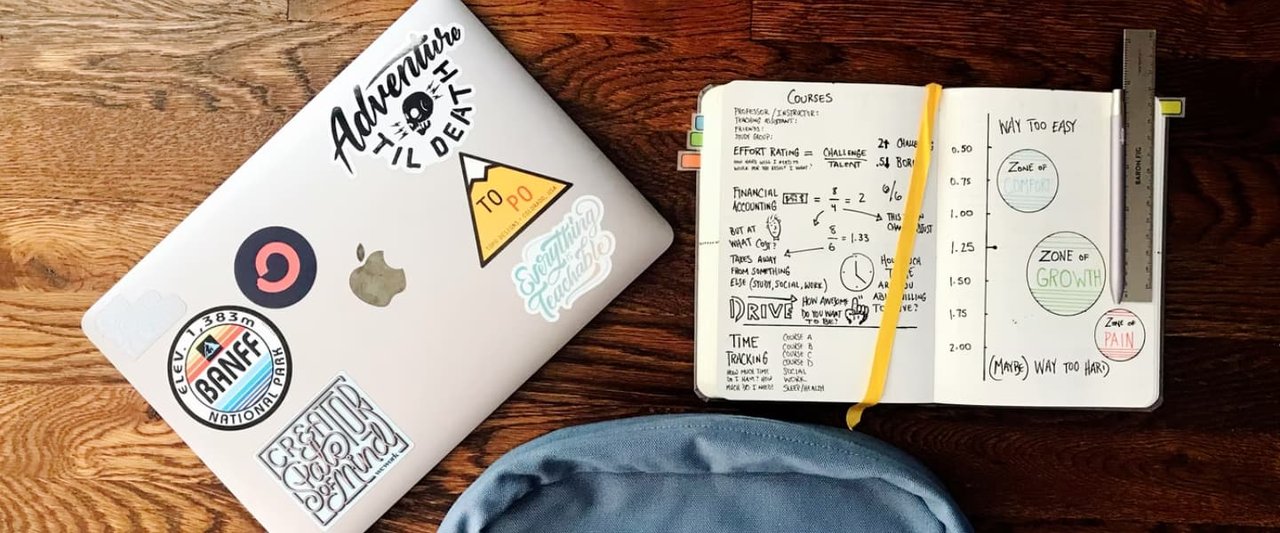 Adventure
'TIL DEATH
TO PO
TOPO DESIGNS / COLORADO, USA
Everything
is
Teachable
ELEV. 1,383m
BANFF
NATIONAL PARK
CREATOR
State
of Mind
COURSES
PROFESSOR / INSTRUCTOR:
TEACHING ASSISTANT:
FRIENDS:
STUDY GROUP:
EFFORT RATING = CHALLENGE
TALENT
HOW HARD WILL I NEED TO
WORK FOR THE RESULT I WANT?
2↑ CHALLE
.5↓ BOR
FINANCIAL
ACCOUNTING
= 8/4 = 2
6/6
THIS
CHA
BUT AT
WHAT COST?
8/6 = 1.33
TAKES AWAY
FROM SOMETHING
ELSE (STUDY, SOCIAL, WORK)
HOW MUCH
TIME
ARE YOU
WILLING
TO GIVE?
DRIVE
HOW AWESOME
DO YOU WANT
TO BE?
TIME
TRACKING
HOW MUCH TIME
DO I HAVE? HOW
MUCH DO I NEED?
COURSE A
COURSE B
COURSE C
COURSE D
SOCIAL
WORK
SLEEP/HEALTH
WAY TOO EASY
0.50
0.75
1.00
1.25
1.50
1.75
2.00
ZONE OF
COMFORT
ZONE OF
GROWTH
ZONE OF
PAIN
(MAYBE) WAY TOO HARD
BARON FIG